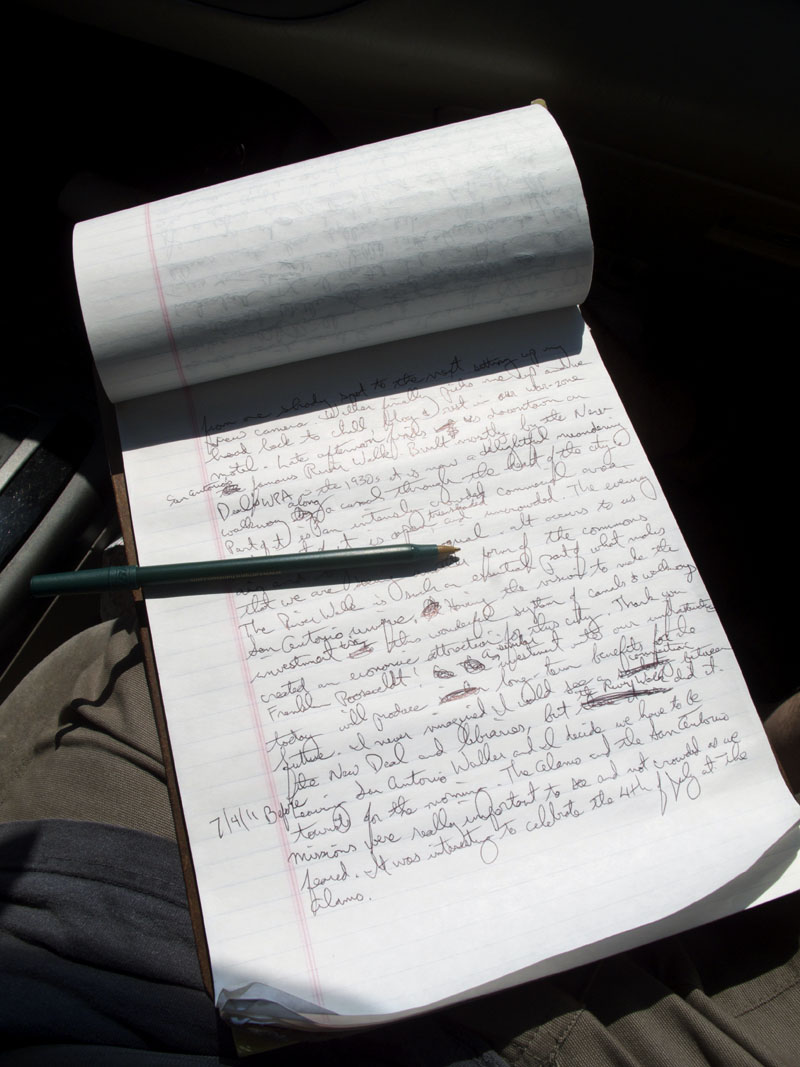 from one shady spot to the next setting up my
view camera. Walker finally picks me up and we
head back to chill & rest in our
motel. Late afternoon finds us downtown on
San Antonio's famous River Walk. Built mostly by the New
Deal's WPA in the 1930s it is now a delightful meandering
walkway along a canal through the heart of the city.
Part of it is an intensely commercial area
it is open and uncrowded. The evening
it occurs to us
that we are form of the commons
The River Walk is such an essential part of what makes
San Antonio unique. Having the vision to make the
investment this wonderful system of canals & walkways
created an economic attraction for this city. Thank you
Franklin Roosevelt! A similar investment to our infrastructure
today will produce long-term benefits for the
future. I never imagined I would see a connection between
the New Deal and libraries, but the River Walk did it.
7/4/11 Before leaving San Antonio Walker and I decide we have to be
tourists for the morning. The Alamo and the San Antonio
missions were really important to see and not crowded as we
feared. It was interesting to celebrate the 4th of July at the
Alamo.